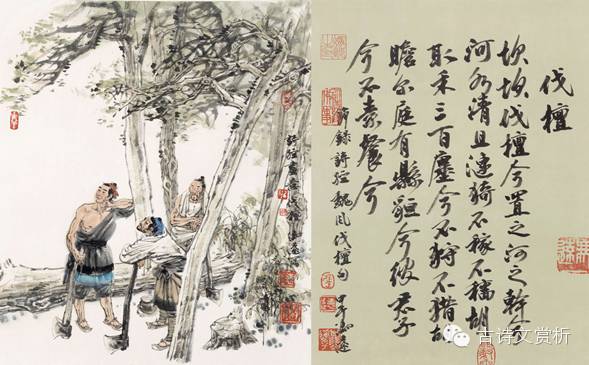 伐檀
坎坎伐檀兮置之河之幹兮
河水清且漣猗不稼不穡胡
取禾三百廛兮不狩不猎胡
瞻尔庭有縣貆兮彼君子
兮不素餐兮
節錄詩經魏風伐檀句
甲午
古诗文赏析